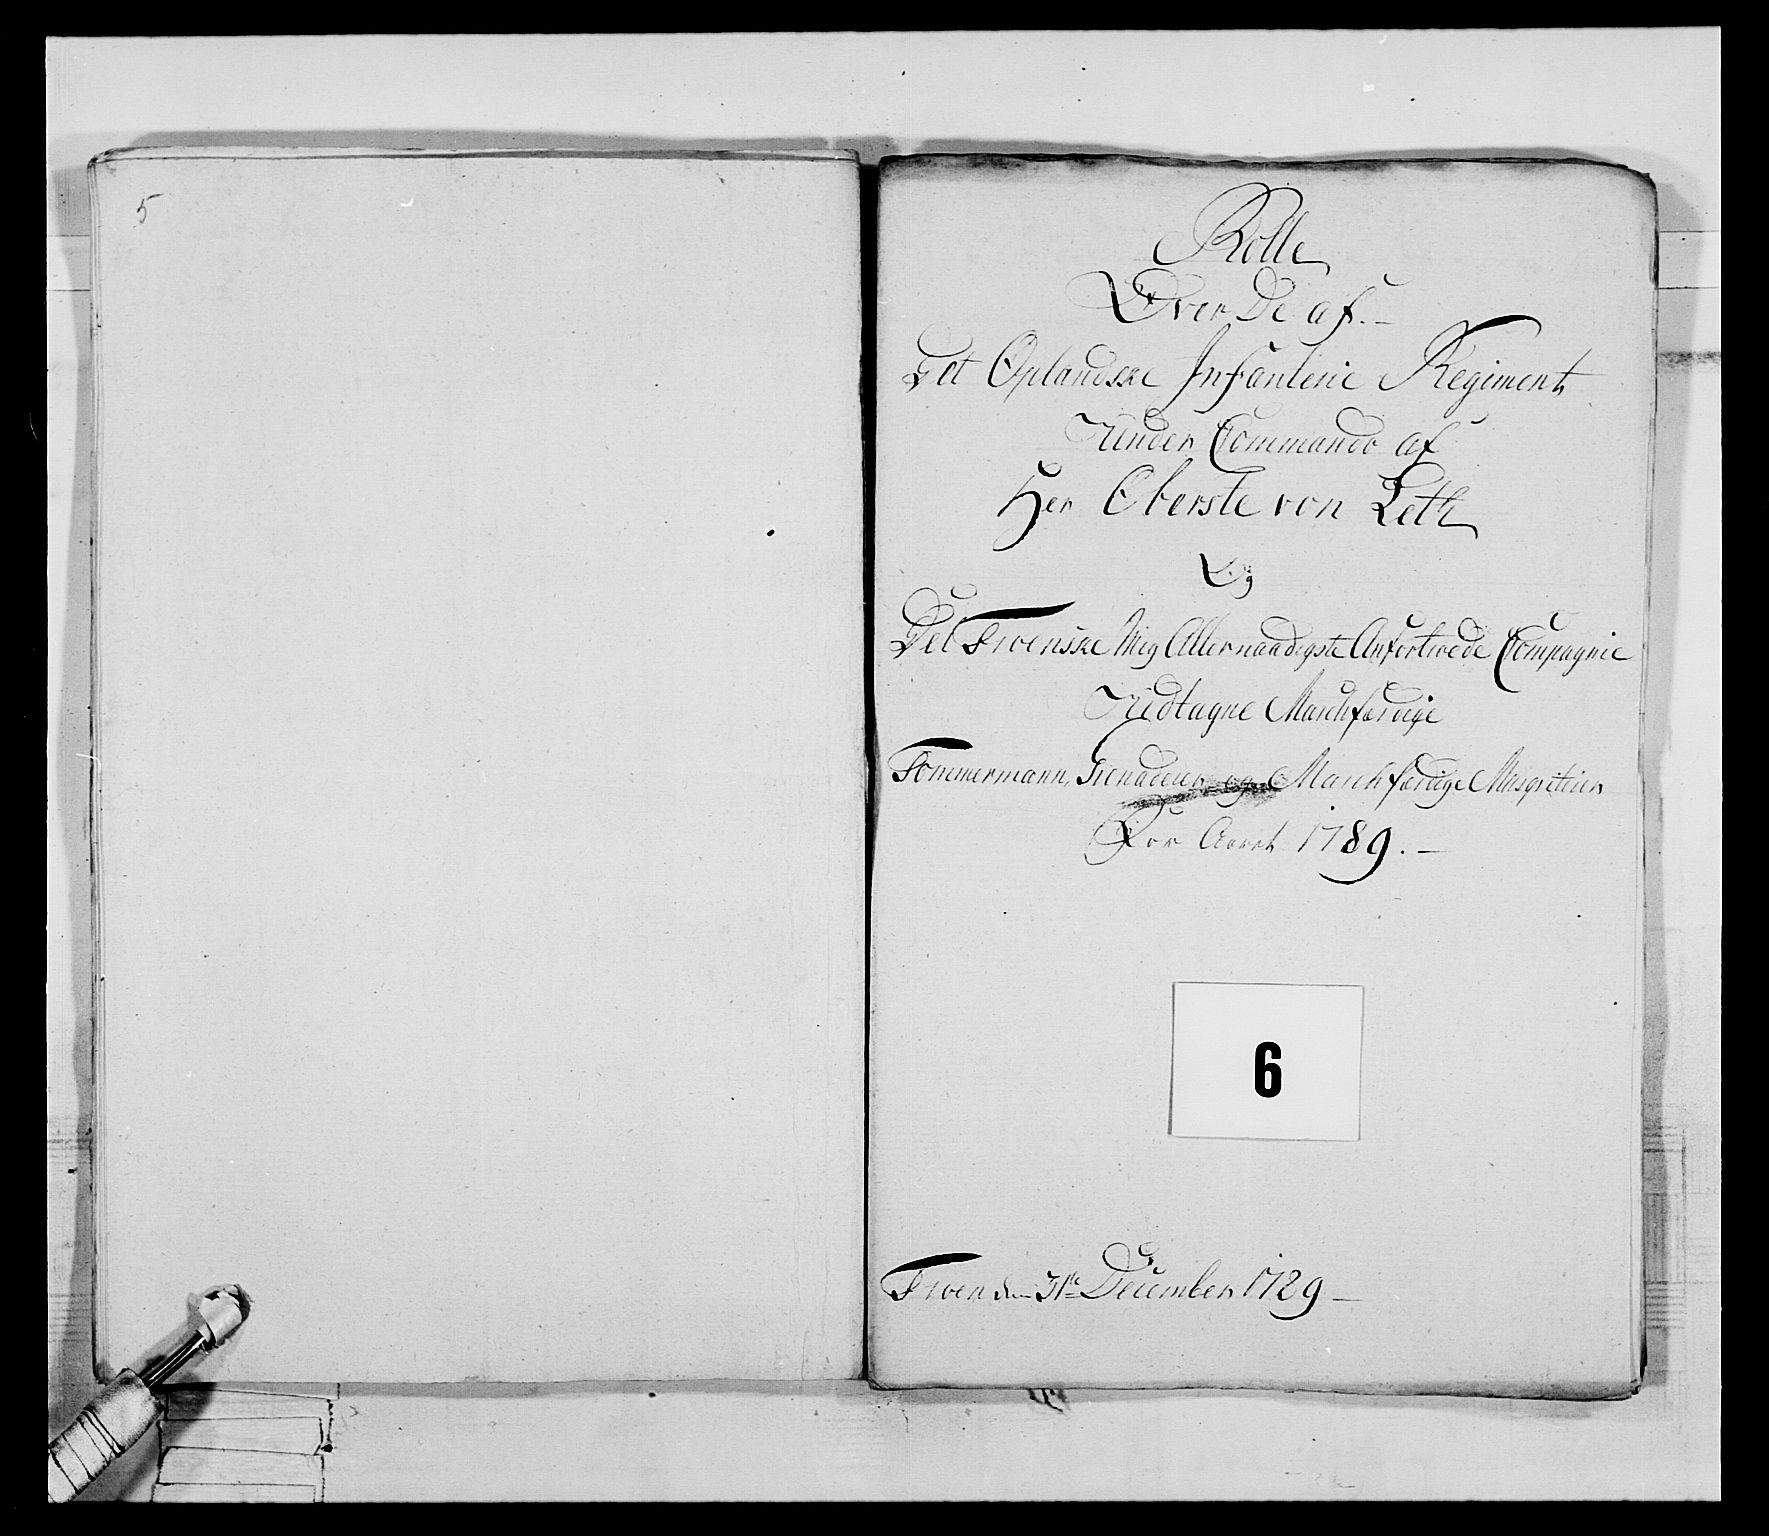 5
Rolle
Over De af. –
Det Oplandske Infanterie Regiment
Under Commando af
Her Oberste von Leth
Og
Det Troenske Mig Allernaadigste Anfortroede Compagnie
Udtagne Marchfærdige
Tømmermænn, Grenaderer og Marchfærdige Musqvetéer
For Aaret 1789. –
6
Troen den 31te December 1789 –